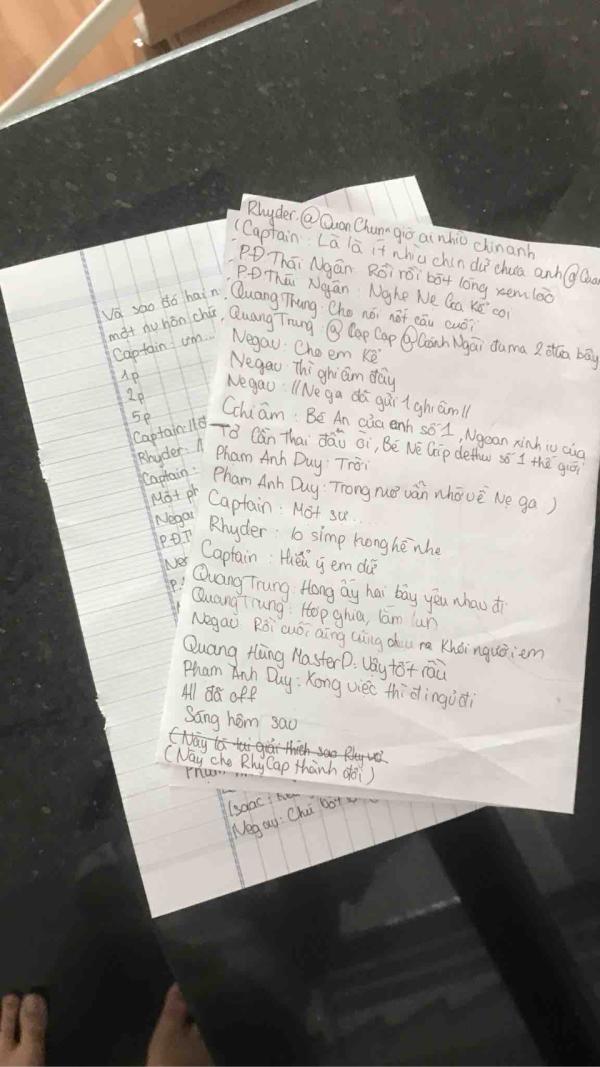 Rhyder: @QuanChunn giờ ai nhiù chin anh
(Captain: Là là ít nhiu chin dử chưa anh @Quan
P.Đ Thái Ngân: Rồi rồi bột lông xem lào
P.Đ Thái Ngân: Nghe Nẹ Gea kể coi
Quang Trung: Cho nói nốt câu cuối
Quang Trung: @Cap Cap @Cánh Ngài đuma 2 đứa bây
Negav: Cho em kể
Negav: Thì ghi âm đây
Negav: //Ne ga đã gửi 1 ghi âm//
Ghi âm: Bé An của anh số 1, Ngoan xinh iu của
Tở Cần Thai đấu ời, Bé Nê Gíp dethw số 1 thế giới
Phạm Anh Duy: Trời
Phạm Anh Duy: Trong mơ vẫn nhớ về Nẹ ga )
Captain: Một sự...
Rhyder: lo simp hong hề nhẹ
Captain: Hiểu ý em dử
Quang Trung: Hong ấy hai bây yêu nhau đi
Quang Trung: Hợp ghia, lắm lun
Negav: Rồi cuối cùng cũng chịu ra khỏi người em
Quang Hùng MasterD: Vậy tốt rầu
Phạm Anh Duy: Xong việc thì đi ngủ đi
All đã off
Sáng hôm sau
(Này là tui giải thích sao Rhy và
(Này cho RhyCap thành đôi)
Và sao đó hai n
một nụ hôn chứ
Captain: ưm...
1p
2p
5p
Captain: //đ
Rhyder: /
Captain:
Một ph
Negav
P.Đ.T
Neg
P.
Phạm
Isaac:
Negav: Chi bột